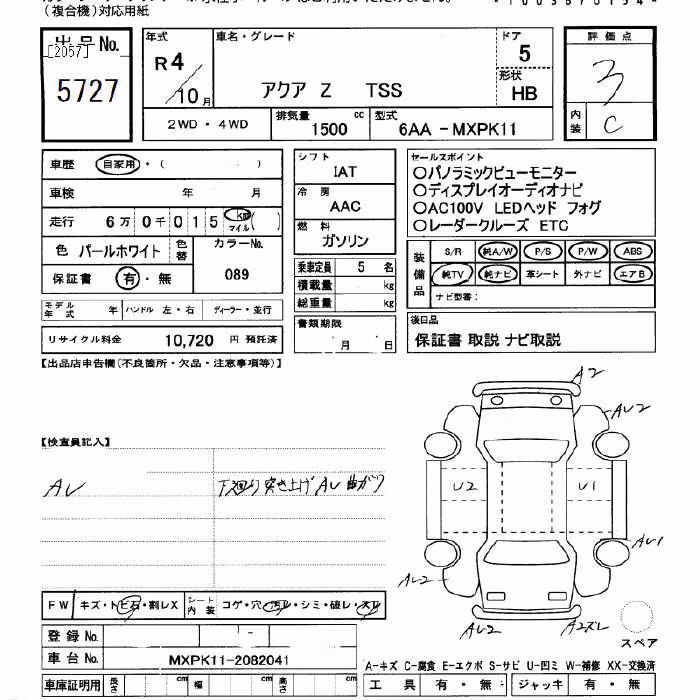 (複合機)対応用紙
*10056701
出品 No.
[2057]
5727
年式
R4/10月
車名・グレード
アクア Z TSS
ドア
5
形状
HB
評価点
3
内装
C
2WD・4WD
排気量
1500 cc
型式
6AA-MXPK11
車歴 自家用・( )
車検 年 月
走行 6万0千015 km マイル ( )
色 パールホワイト
色替
カラーNo.
089
保証書 有・無
モデル年式 年 ハンドル 左・右 ディーラー・並行
リサイクル料金 10,720 円 預託済
シフト
IAT
冷房
AAC
燃料
ガソリン
乗車定員 5 名
積載量 kg
総重量 kg
書類期限
月 日
セールスポイント
○パノラミックビューモニター
○ディスプレイオーディオナビ
○AC100V LEDヘッド フォグ
○レーダークルーズ ETC
装備品
S/R 純A/W P/S P/W ABS
純TV 純ナビ 革シート 外ナビ エアB
ナビ型番:
後日品
保証書 取説 ナビ取説
【出品店申告欄(不良箇所・欠品・注意事項等)】
【検査員記入】
AU
下廻り 突き上げ AU 曲がり
A2
AU2
U2
U1
AU1
AU2
AU2
A2ズレ
スペア
FW キズ・トビ石・割レX
シート内装 コゲ・穴・汚レ・シミ・破レ・スレ
登録 No.
車台 No. MXPK11-2082041
車庫証明用 長さ cm 幅 cm 高さ cm
A-キズ C-腐食 E-エクボ S-サビ U-凹ミ W-補修 XX-交換済
工具 有・無 ジャッキ 有・無